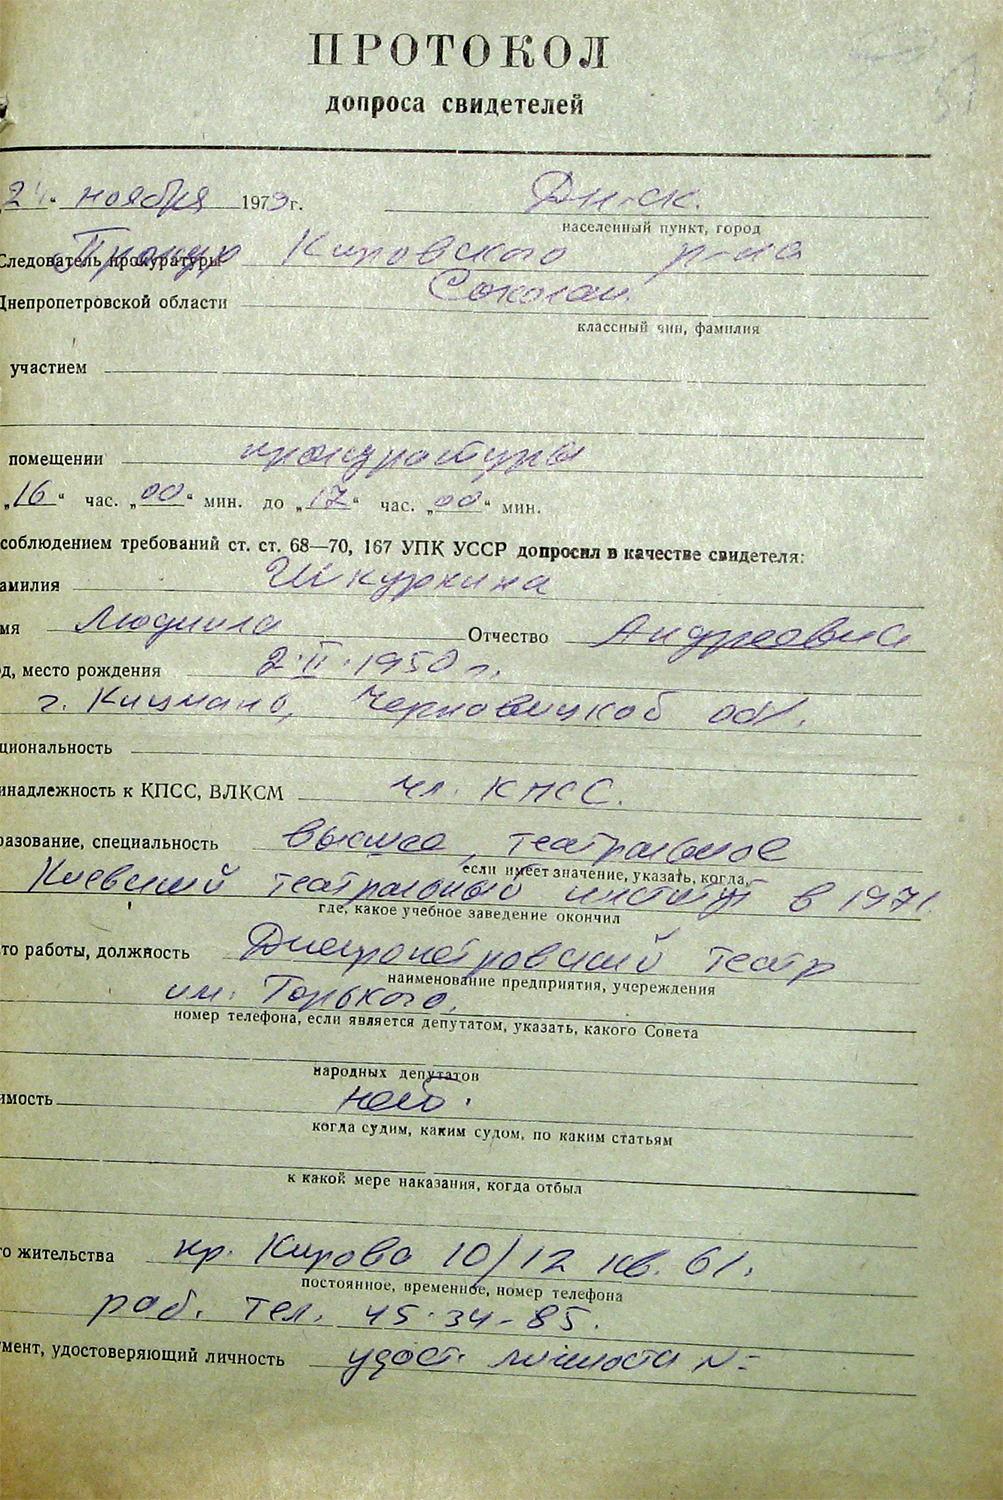 ПРОТОКОЛ
допроса свидетелей
ноября 1973 г. Дн-ск.
населенный пункт, город
Следователь прокуратуры Прокур Кировского р-на
Днепропетровской области
классный чин, фамилия
участием
помещении прокуратуры
„16“ час. „00“ мин. до „17“ час. „00“ мин.
соблюдением требований ст. ст. 68—70, 167 УПК УССР допросил в качестве свидетеля:
амилия Шкуркина
мя Людмила Отчество Андреевна
од, место рождения 2.II.1950 г.
г. Кицмань, Черновицкой обл.
циональность
инадлежность к КПСС, ВЛКСМ чл. КПСС.
разование, специальность высшее, театральное
если имеет значение, указать, когда,
Киевский театральный институт в 1971
где, какое учебное заведение окончил
то работы, должность Днепропетровский театр
наименование предприятия, учереждения
им. Горького,
номер телефона, если является депутатом, указать, какого Совета
народных депутатов
имость
когда судим, каким судом, по каким статьям
к какой мере наказания, когда отбыл
го жительства пр. Кирова 10/12 кв. 61.
постоянное, временное, номер телефона
раб. тел. 45-34-85.
умент, удостоверяющий личность удост. личности №=